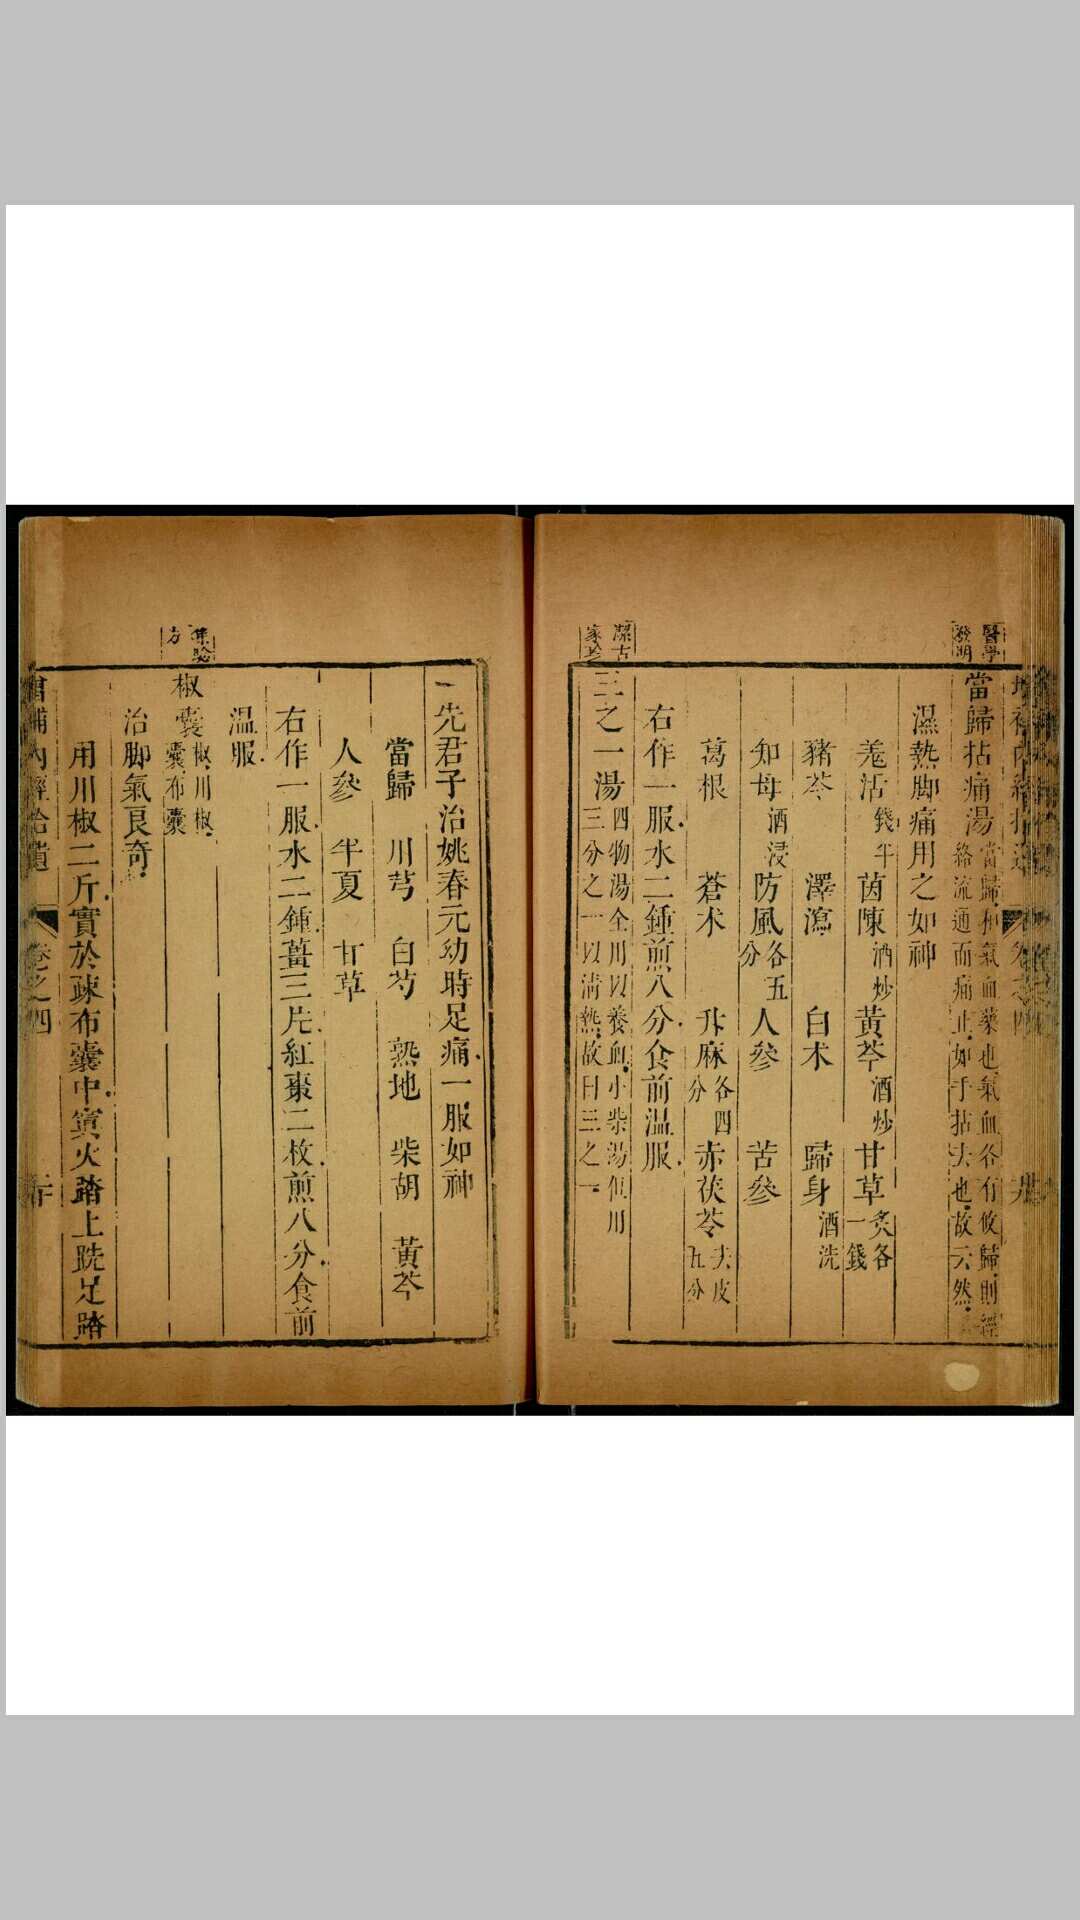 醫學
發明
當歸拈痛湯
當歸和氣血藥也氣血各有攸歸則經
絡流通而痛止如手拈去也故云然
濕熱脚痛用之如神
羗活
半
錢
茵陳
酒炒
黃芩
酒炒
甘草
炙各
一錢
豬苓
澤瀉
白术
歸身
酒洗
知母
酒浸
防風
各五
分
人參
苦參
葛根
蒼术
升麻
各四
分
赤茯苓
去皮
九分
右作一服水二鍾煎八分食前温服
潔古
家珍
三之一湯
四物湯全用以養血小柴湯但用
三分之一以清熱故曰三之一
一先君子治姚春元幼時足痛一服如神
當歸
川芎
白芍
熟地
柴胡
黃芩
人參
半夏
甘草
右作一服水二鍾薑三片紅棗二枚煎八分食前
温服
集驗
方
椒囊
椒川椒
囊布囊
治脚氣良奇
用川椒二斤實於疎布囊中窴火踏上跣足踏
補內經拾遺
卷之四